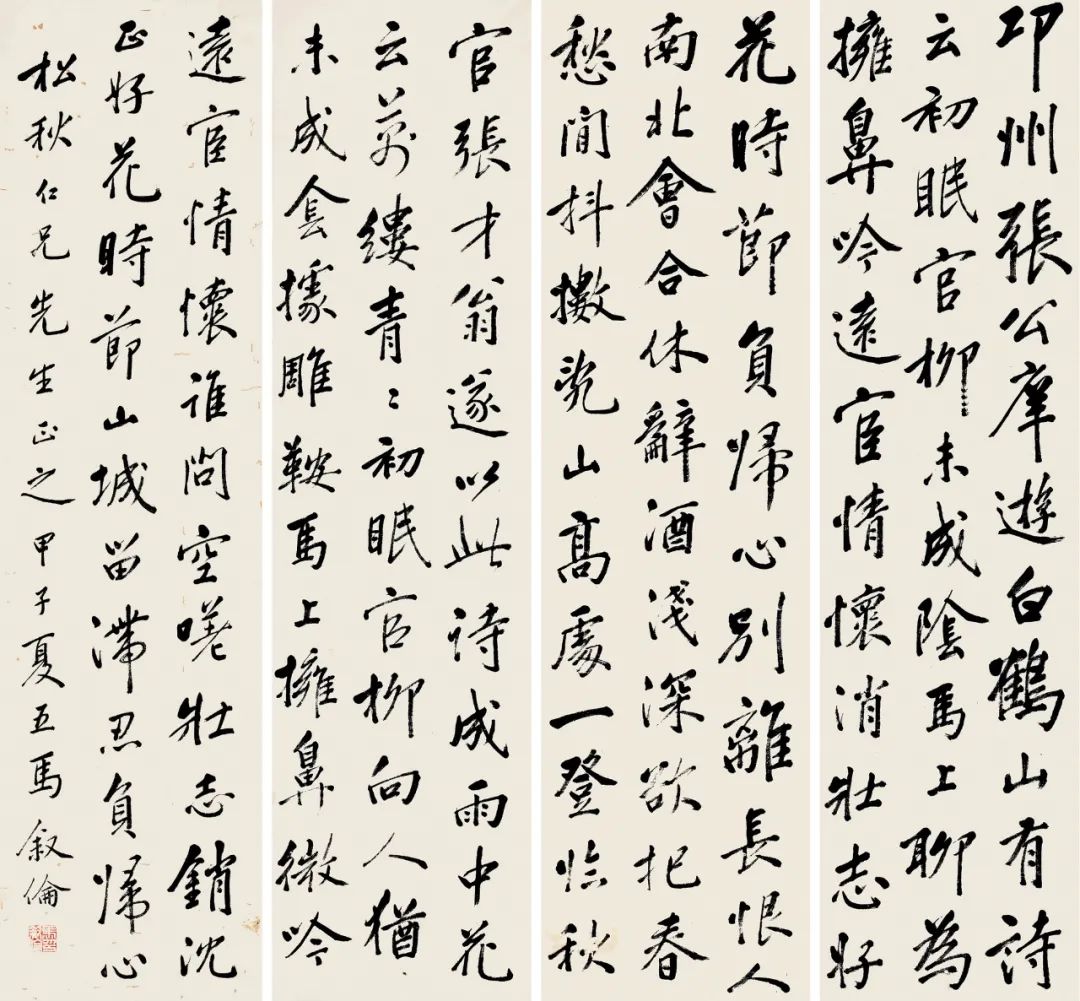 邛州張公庠遊白鶴山有詩
云初眠官柳未成陰馬上聊為
擁鼻吟遠宦情懷消壯志好
花時節負歸心別離長恨人
南北會合休辭酒淺深欲把春
愁閒抖擻乱山高處一登臨秋
官張才翁遂以此詩成雨中花
云萬縷青〻初眠官柳向人猶
未成侌據雕鞍馬上擁鼻微吟
遠宦情懷誰問空嗟壯志銷沈
正好花時節山城留滯忍負歸心
松秋仁兄先生正之甲子夏五馬叙倫